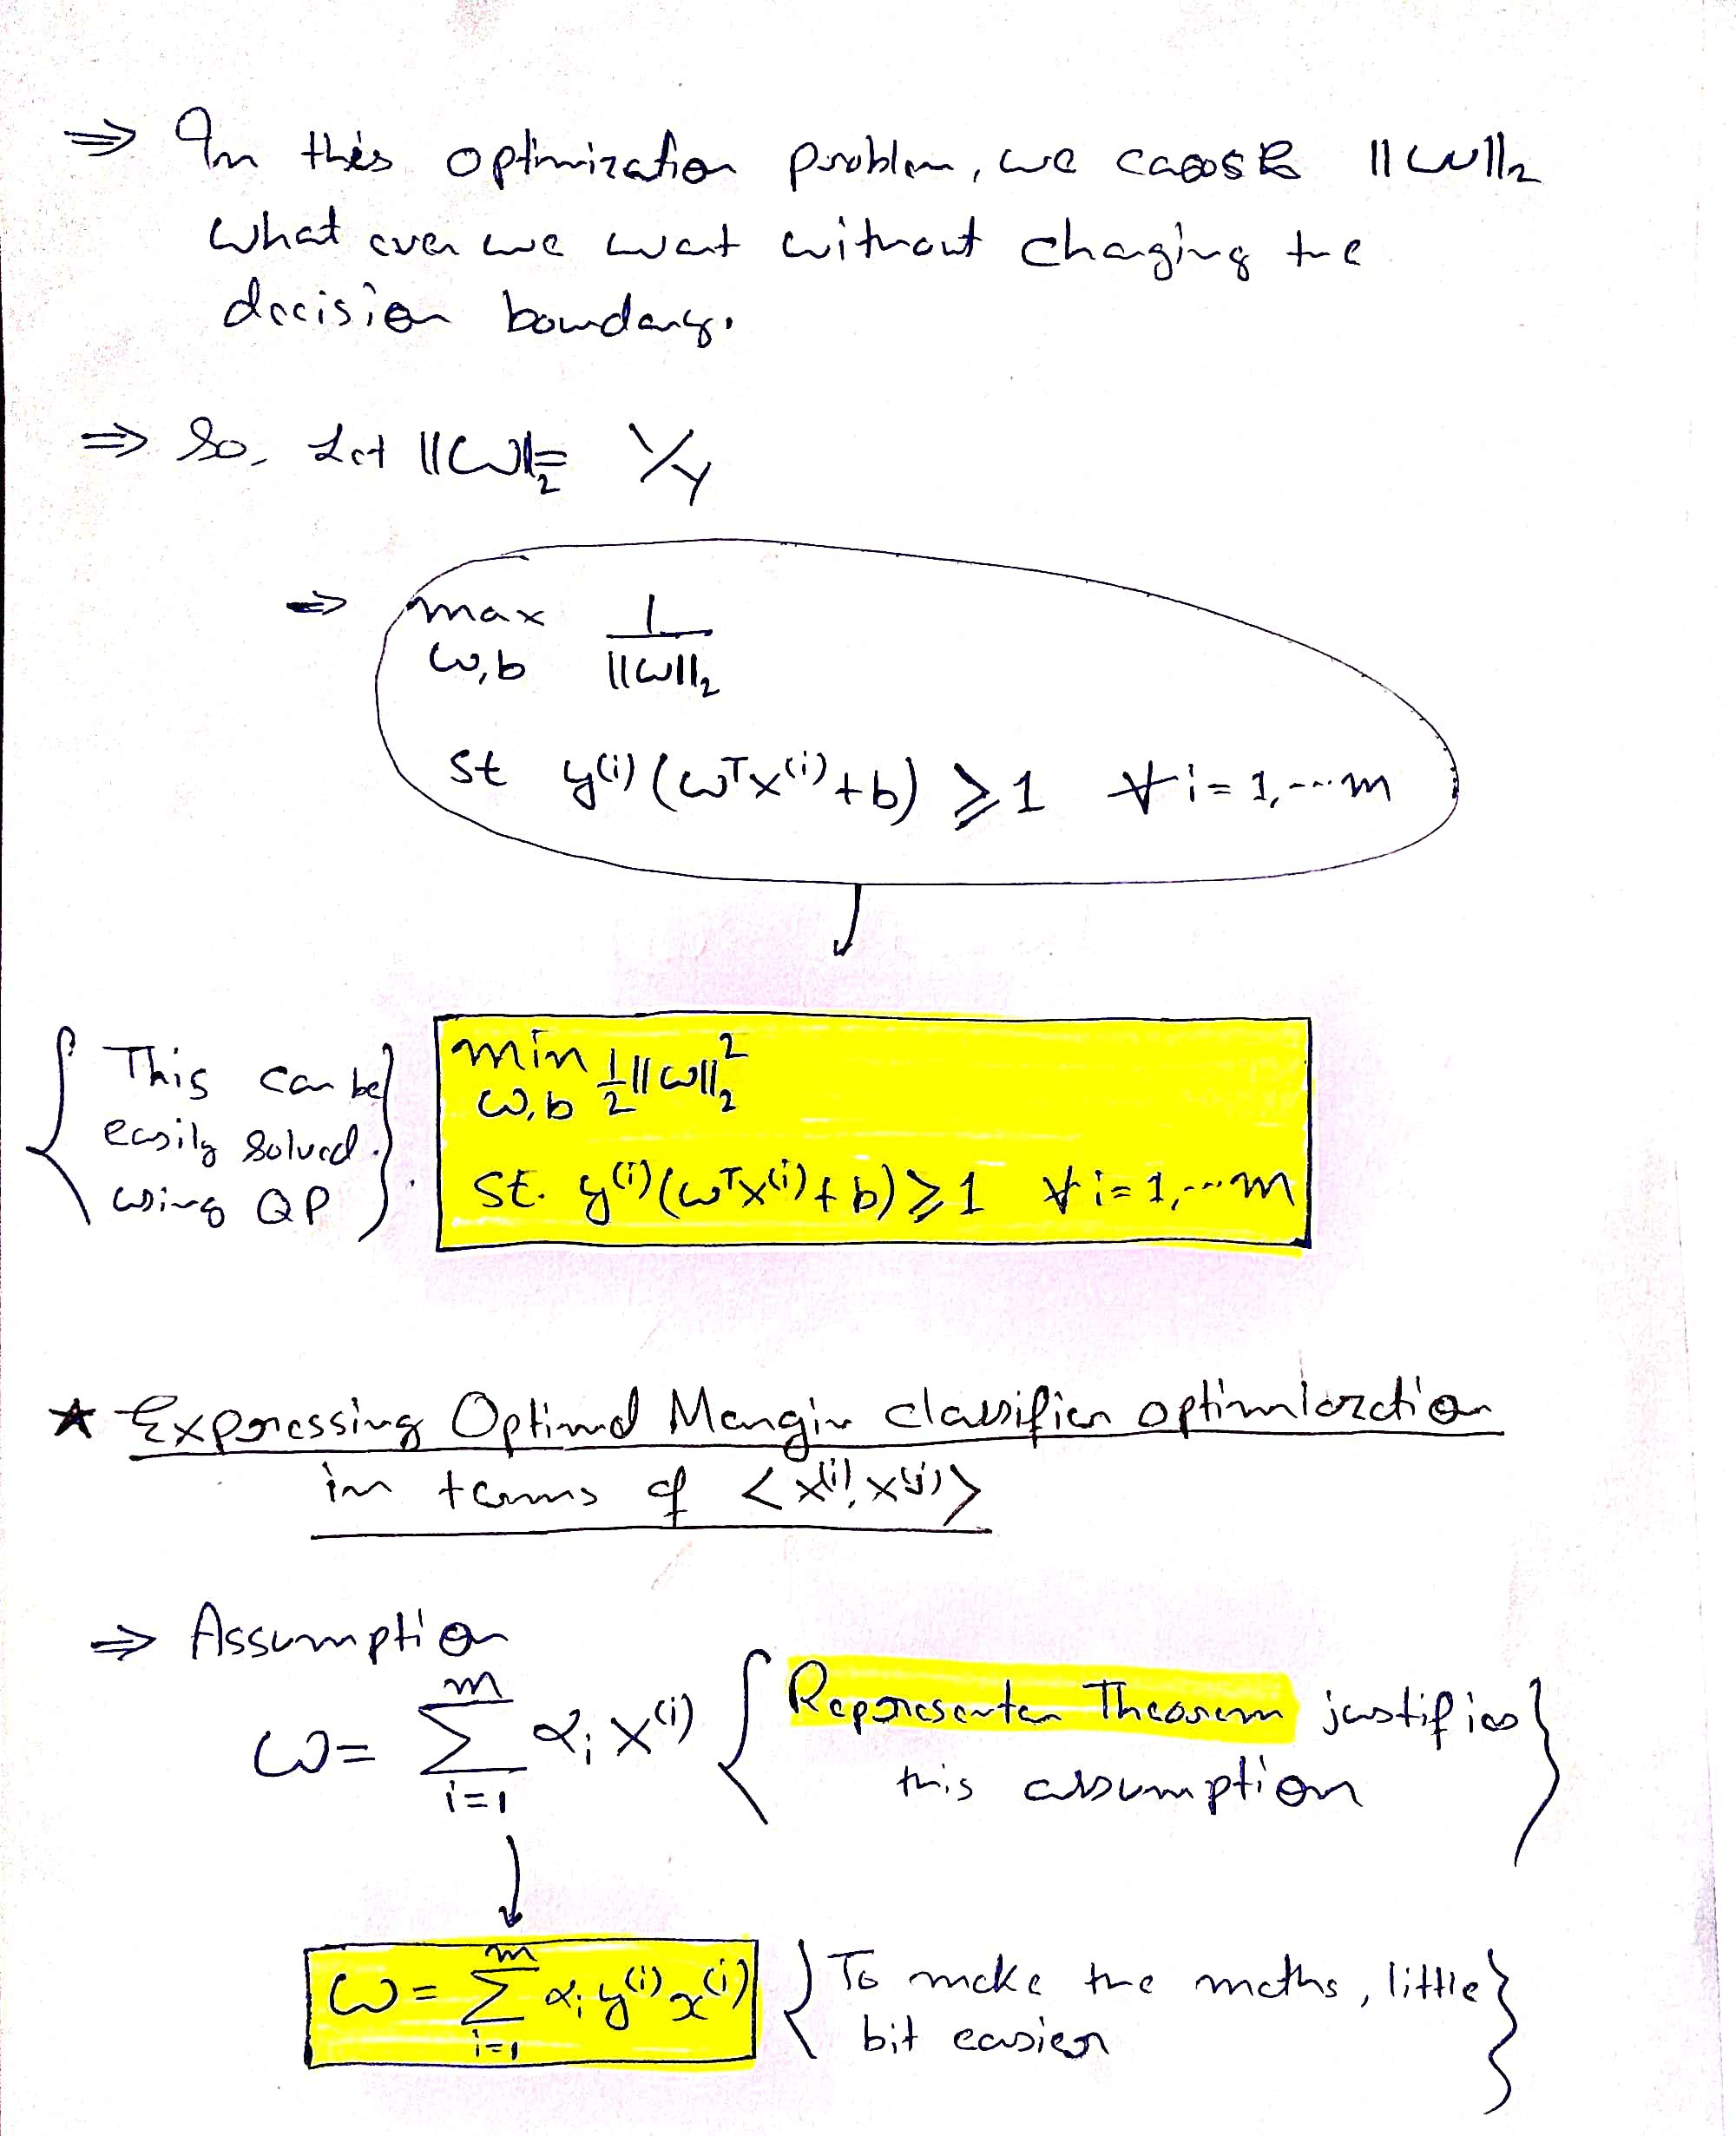 ⇒ In this optimization problem, we choose ||w||₂
what ever we want without changing the
decision boundary.
⇒ So, Let ||w||₂ = 1/γ
⇒ max 1
w,b ||w||₂
st y⁽ⁱ⁾(wᵀx⁽ⁱ⁾+b) ⩾ 1 ∀ i = 1, ... m
{ This can be
easily solved.
using QP }.
min ½||w||₂²
w,b
st. y⁽ⁱ⁾(wᵀx⁽ⁱ⁾+b) ⩾ 1 ∀ i = 1, ... m
★ Expressing Optimal Margin classifier optimization
in terms of <x⁽ⁱ⁾, x⁽ʲ⁾>
⇒ Assumption
w = Σᵢ₌₁ᵐ αᵢ x⁽ⁱ⁾ { Representer Theorem justifies
this assumption }
w = Σᵢ₌₁ᵐ αᵢ y⁽ⁱ⁾ x⁽ⁱ⁾ { To make the maths, little
bit easier }